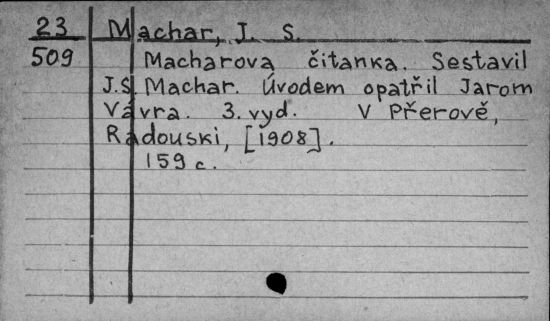 23 Machar, J. S.
509 Macharova čitanka. Sestavil
J.S. Machar. Úvodem opatřil Jarom
Vávra. 3. vyd. V Přerově,
Radouski, [1908].
159 c.